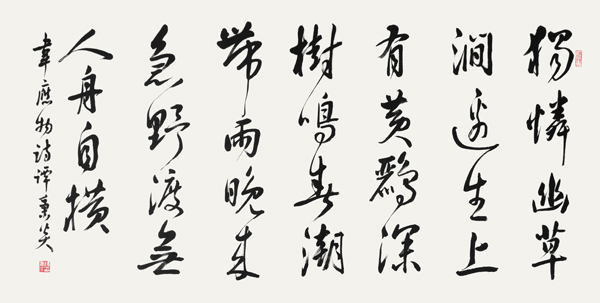 獨憐幽草
澗邊生上
有黃鸝深
樹鳴春潮
帶雨晚來
急野渡無
人舟自橫
韋應物詩譚秉炎